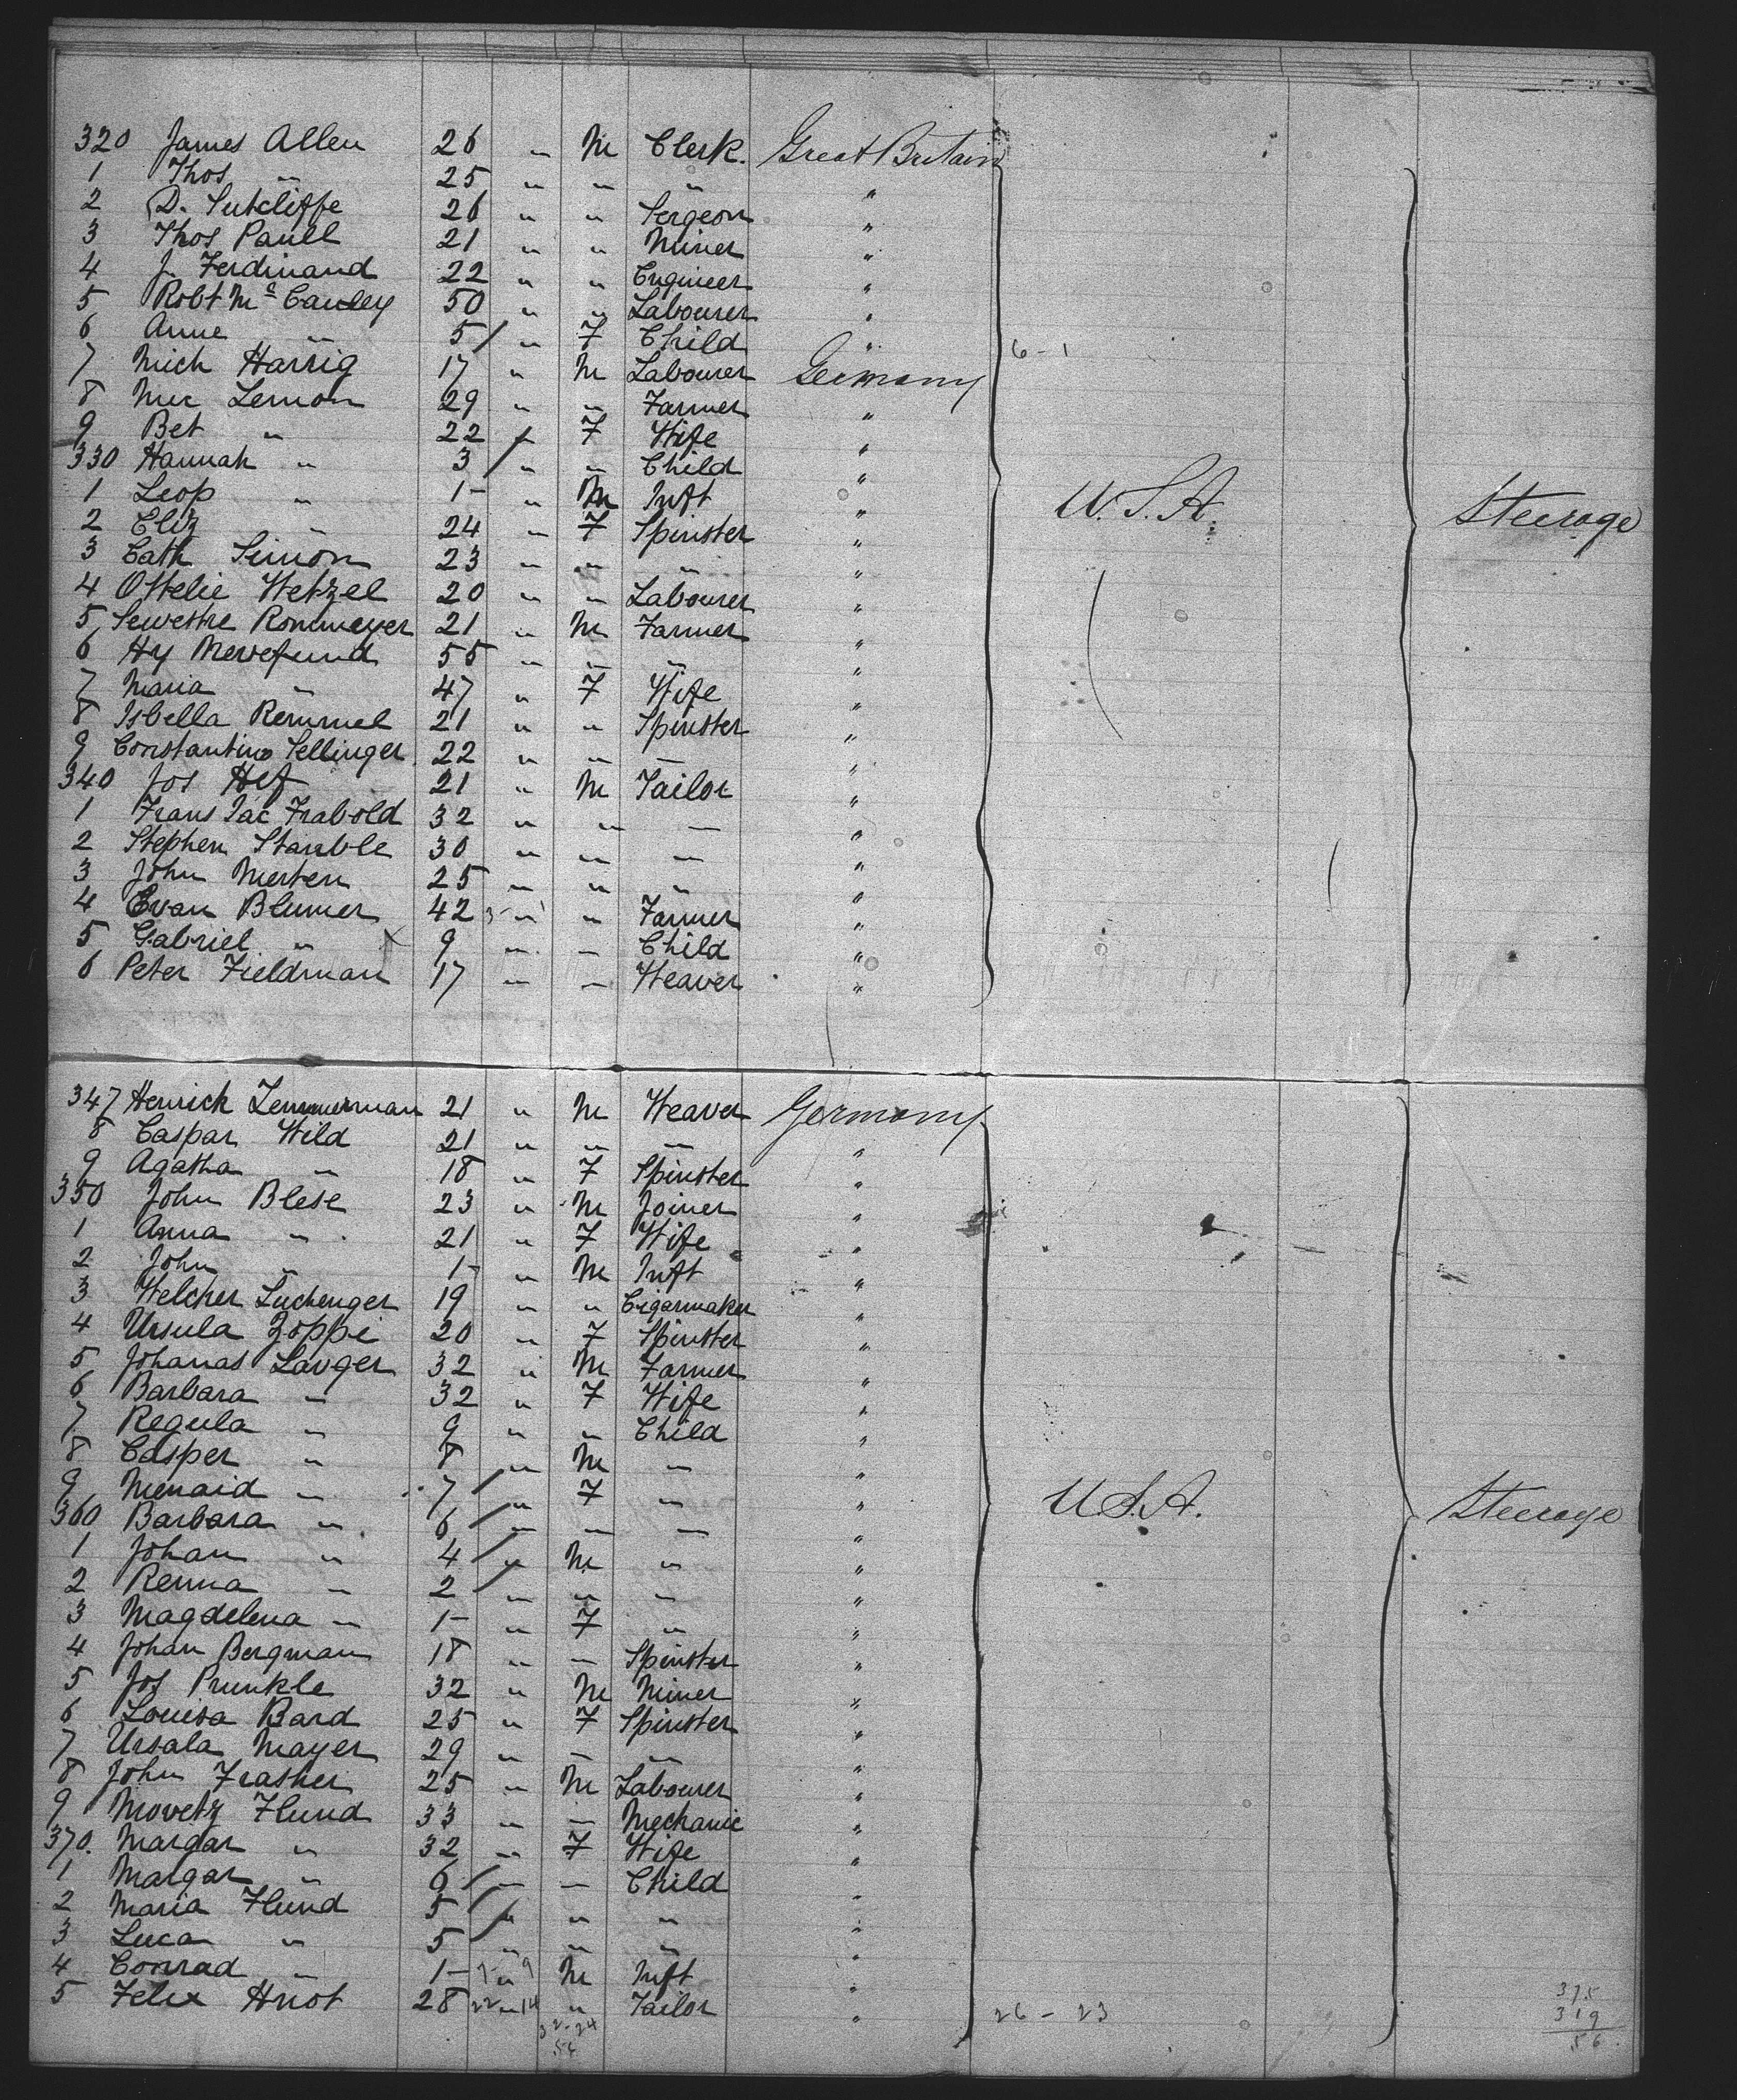 320 James Allen 26 " M Clerk. Great Britain
1 Thos " 25 " " " "
2 D. Sutcliffe 26 " " Sergeon "
3 Thos Paull 21 " " Miner "
4 J. Ferdinand 22 " " Engineer "
5 Robt McCauley 50 " " Labourer "
6 Anne " 5 / " F Child " 6-1
7 Mich Harrig 17 " M Labourer Germany
8 Lemon 29 " " Farmer "
9 Bet " 22 / F Wife "
330 Hannah " 3 / " " Child "
1 Leop " 1- " M Inft " U.S.A. Steerage
2 Eliz " 24 " F Spinster "
3 Cath Simon 23 " " " "
4 Ottelie Wetzel 20 " " Labourer "
5 Sewestre Rommeyer 21 " M Farmer "
6 Hy Nervefund 55 " " " "
7 Maria " 47 " F Wife "
8 Isbella Remmel 21 " " Spinster "
9 Constantino Sellinger 22 " " " "
340 Jos Hef 21 " M Tailor "
1 Frans Jac Frabold 32 " " " "
2 Stephen Stauble 30 " " " "
3 John Merten 25 " " " "
4 Evan Blumer 42 " " Farmer "
5 Gabriel " X 9 " " Child "
6 Peter Fieldman 17 " " Weaver "
347 Henrick Zemmerman 21 " M Weaver Germany
8 Caspar Wild 21 " " " "
9 Agatha " 18 " F Spinster "
350 John Blese 23 " M Joiner "
1 Anna " 21 " F Wife "
2 John " 1- " M Inft "
3 Welcher Luchenger 19 " " Cigarmaker "
4 Ursula Zoppi 20 " F Spinster "
5 Johanas Lavger 32 " M Farmer "
6 Barbara " 32 " F Wife "
7 Regula " 9 " " Child "
8 Casper " 8 " M " "
9 Menaid " 7 / " F " " U.S.A. Steerage
360 Barbara " 6 / " " " "
1 Johan " 4 / " M " "
2 Renna " 2 / " " " "
3 Magdelena " 1- " F " "
4 Johan Bergman 18 " " Spinster "
5 Jos Prunkle 32 " M Miner "
6 Louisa Bard 25 " F Spinster "
7 Ursala Mayer 29 " " " "
8 John Frasher 25 " M Labourer "
9 Movetz Hund 33 " " Mechanic "
370. Margar " 32 " F Wife "
1 Margar " 6 / " " Child "
2 Maria Hund 5 / " " " "
3 Luca " 5 " " " "
4 Conrad " 1- " M Inft "
5 Felix Hnot 28 22 " 14 " Tailor " 26-23
32-24
56
375
319
56